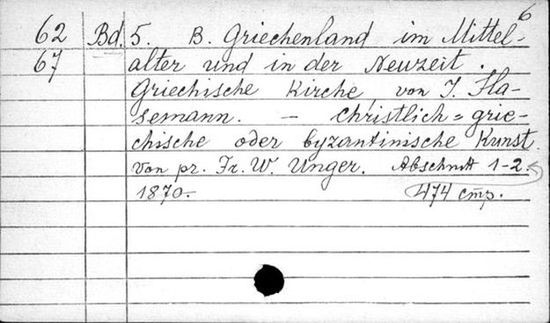 6
62 Bd. 5. B. Griechenland im Mittel-
67 alter und in der Neuzeit.
Griechische Kirche von J. Ha-
semann. — Christlich=grie-
chische oder byzantinische Kunst
von pr. Fr. W. Unger. Abschnitt 1-2.
1870. 474 cmp.